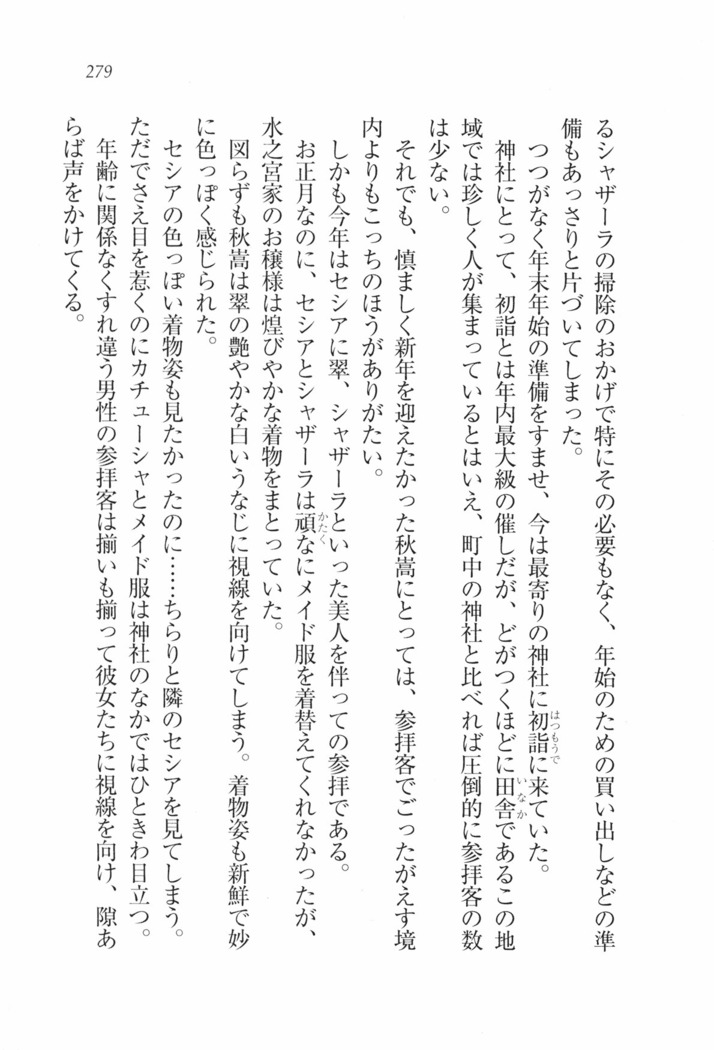 279
るシャザーラの掃除のおかげで特にその必要もなく、年始のための買い出しなどの準
備もあっさりと片づいてしまった。
つつがなく年末年始の準備をすませ、今は最寄りの神社に初詣に来ていた。
神社にとって、初詣とは年内最大級の催しだが、どがつくほどに田舎であるこの地
域では珍しく人が集まっているとはいえ、町中の神社と比べれば圧倒的に参拝客の数
は少ない。
それでも、慎ましく新年を迎えたかった秋嵩にとっては、参拝客でごったがえす境
内よりもこっちのほうがありがたい。
しかも今年はセシアに翠、シャザーラといった美人を伴っての参拝である。
お正月なのに、セシアとシャザーラは頑なにメイド服を着替えてくれなかったが、
水之宮家のお穣様は煌びやかな着物をまとっていた。
図らずも秋嵩は翠の艶やかな白いうなじに視線を向けてしまう。着物姿も新鮮で妙
に色っぽく感じられた。
セシアの色っぽい着物姿も見たかったのに……ちらりと隣のセシアを見てしまう。
ただでさえ目を惹くのにカチューシャとメイド服は神社のなかではひときわ目立つ。
年齢に関係なくすれ違う男性の参拝客は揃いも揃って彼女たちに視線を向け、隙あ
らば声をかけてくる。